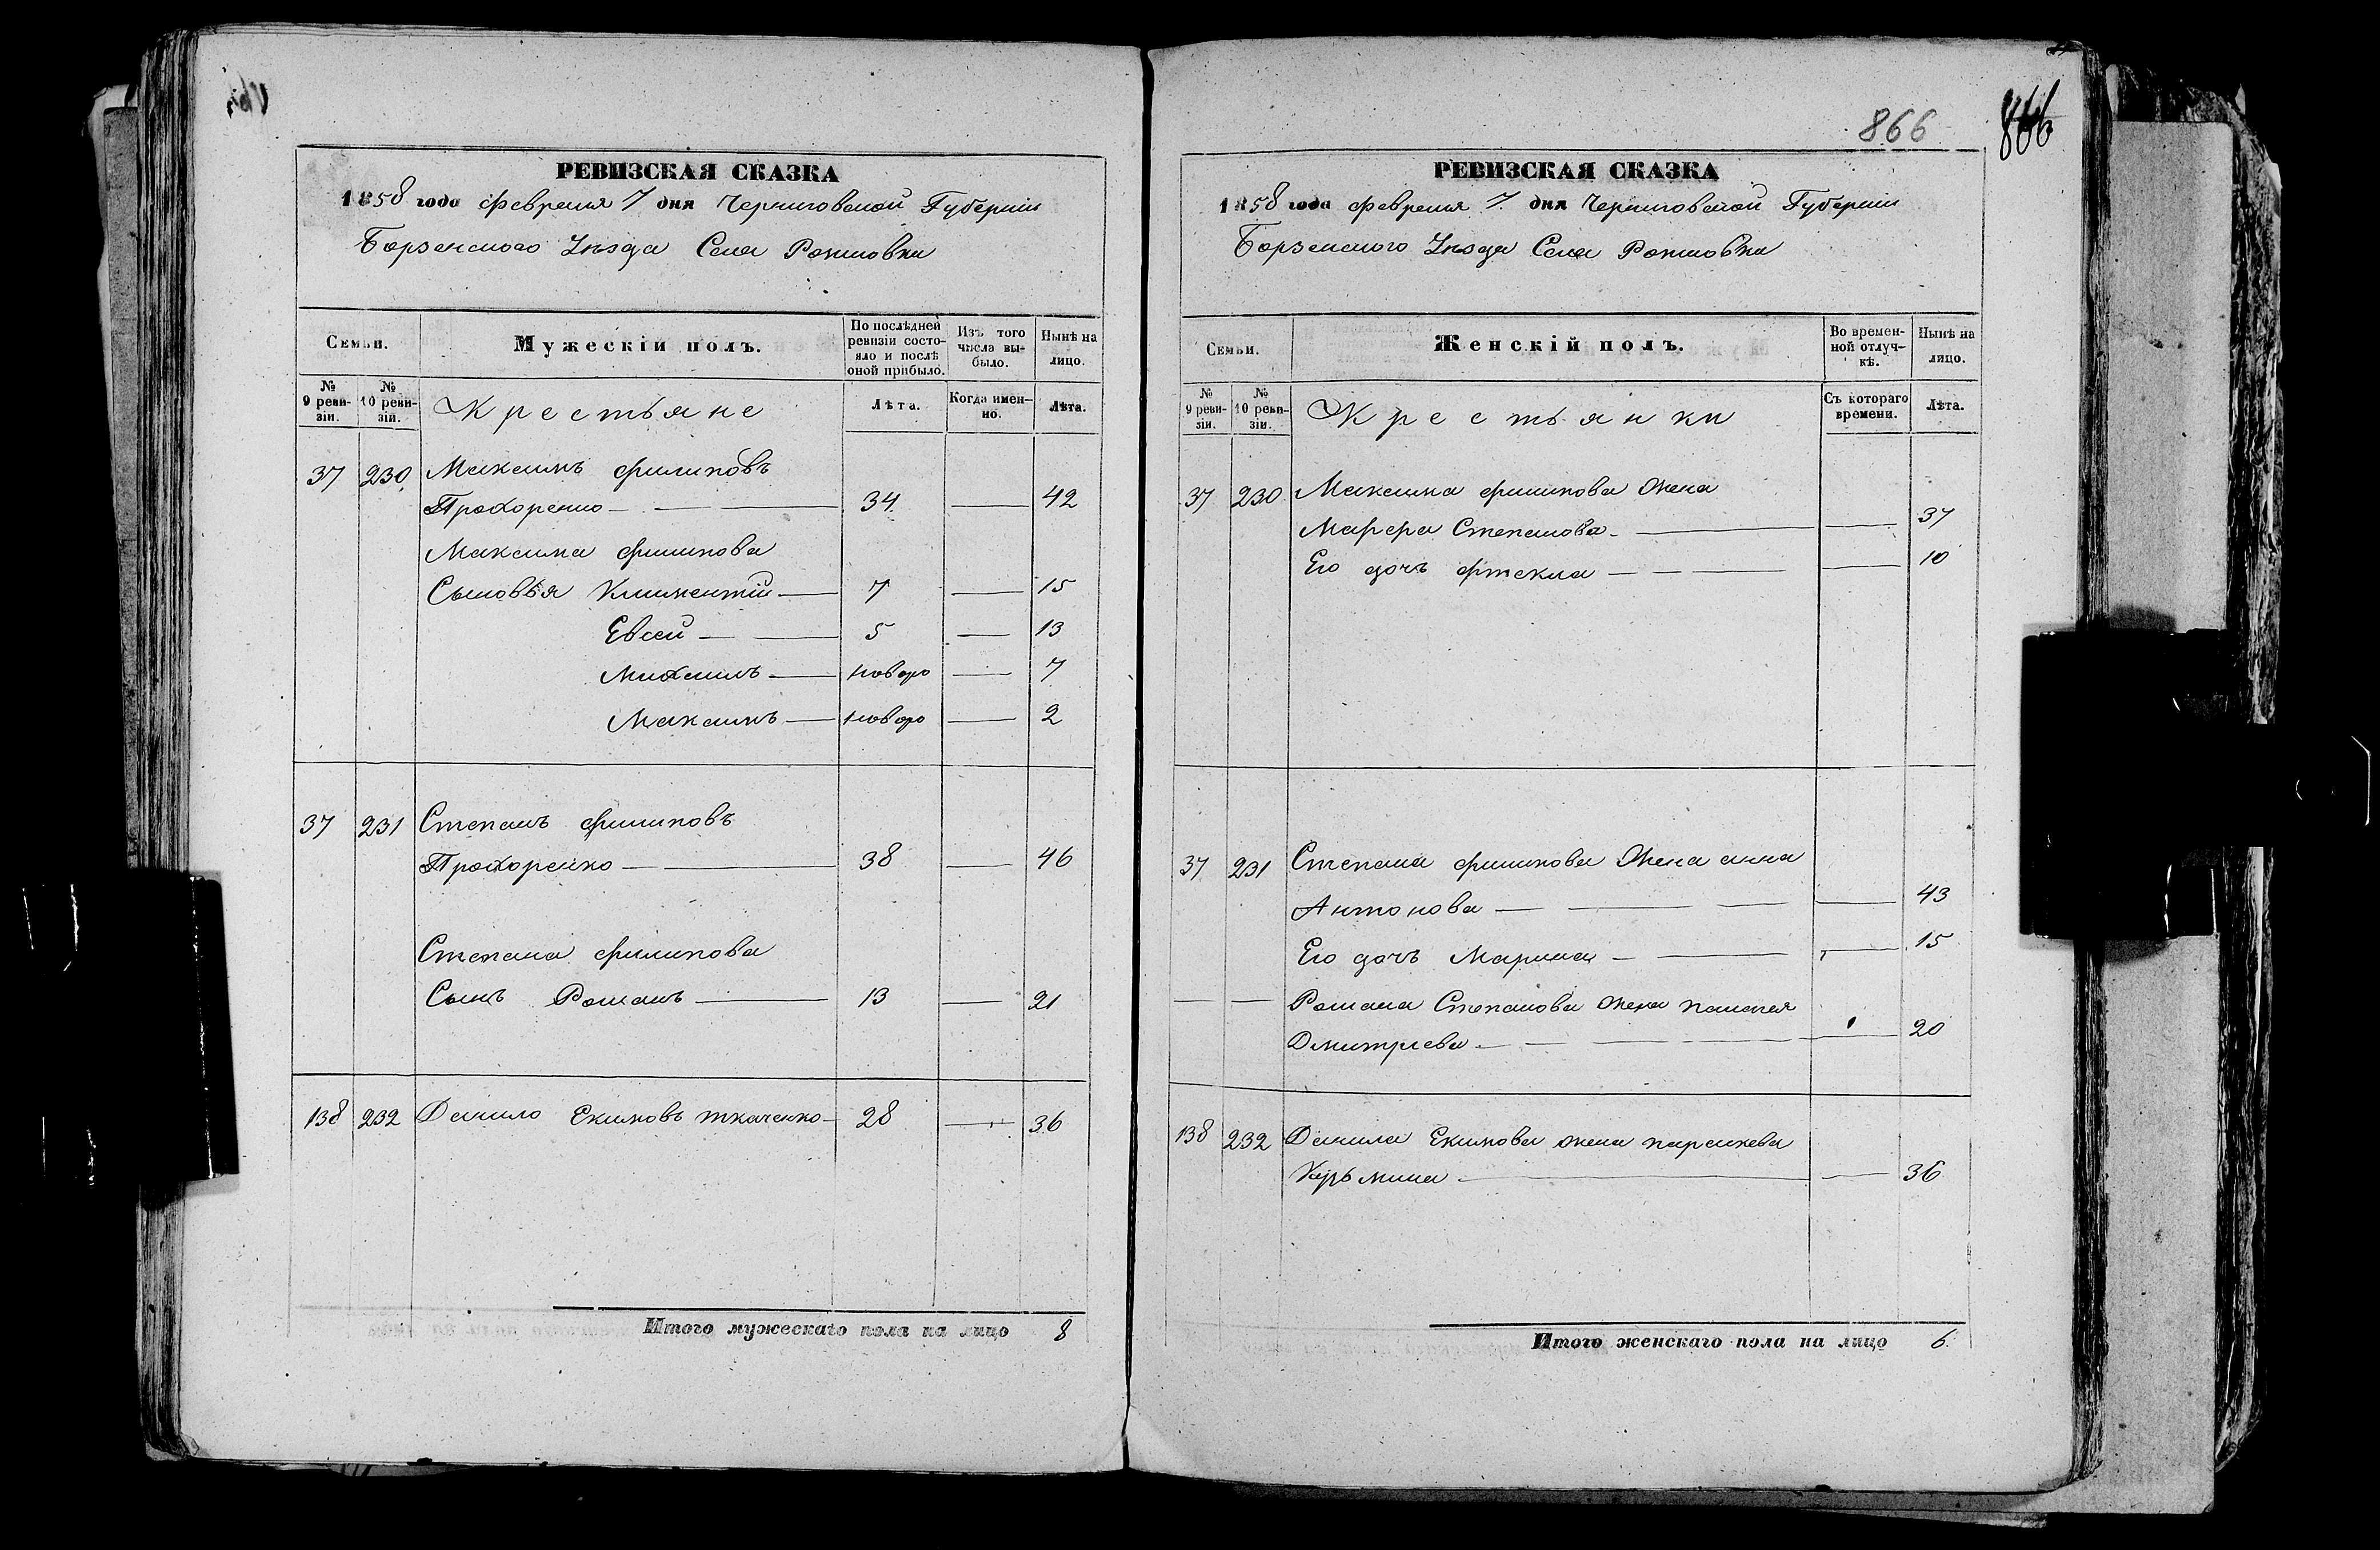 РЕВИЗСКАЯ СКАЗКА
1858 года февраля 7 дня Черниговской Губернии
Борзенского Уѣзда Села Рожновки
Семьи.
Мужескій полъ.
По послѣдней ревизіи состояло и послѣ оной прибыло.
Изъ того числа выбыло.
Нынѣ на лицо.
№ 9 ревизіи.
№ 10 ревизіи.
Крестьяне
Лѣта.
Когда именно.
Лѣта.
37 230 Максимъ филиповъ
Прохоренко 34 42
Максима филипова
Сыновья Климентій 7 15
Евсей 5 13
Михаилъ новоро 7
Максимъ новоро 2
37 231 Степанъ филиповъ
Прохоренко 38 46
Степана филипова
Сынъ Романъ 13 21
138 232 Данило Екимовъ ткаченко 28 36
Итого мужескаго пола на лицо 8
866
866
РЕВИЗСКАЯ СКАЗКА
1858 года февраля 7. дня Черниговской Губернии
Борзенского Уѣзда Села Рожновки
Семьи.
Женскій полъ.
Во временной отлучкѣ.
Нынѣ на лицо.
№ 9 ревизіи.
№ 10 ревизіи.
Крестьянки
Съ котораго времени.
Лѣта.
37 230 Максима филипова жена
Марфа Степанова 37
Его дочь фтекла 10
37 231 Степана филипова жена анна
Антонова 43
Его дочь Марина 15
Романа Степанова жена
Дмитриева 20
138 232 Данила Екимова жена параскева
Кузьмина 36
Итого женскаго пола на лицо 6.